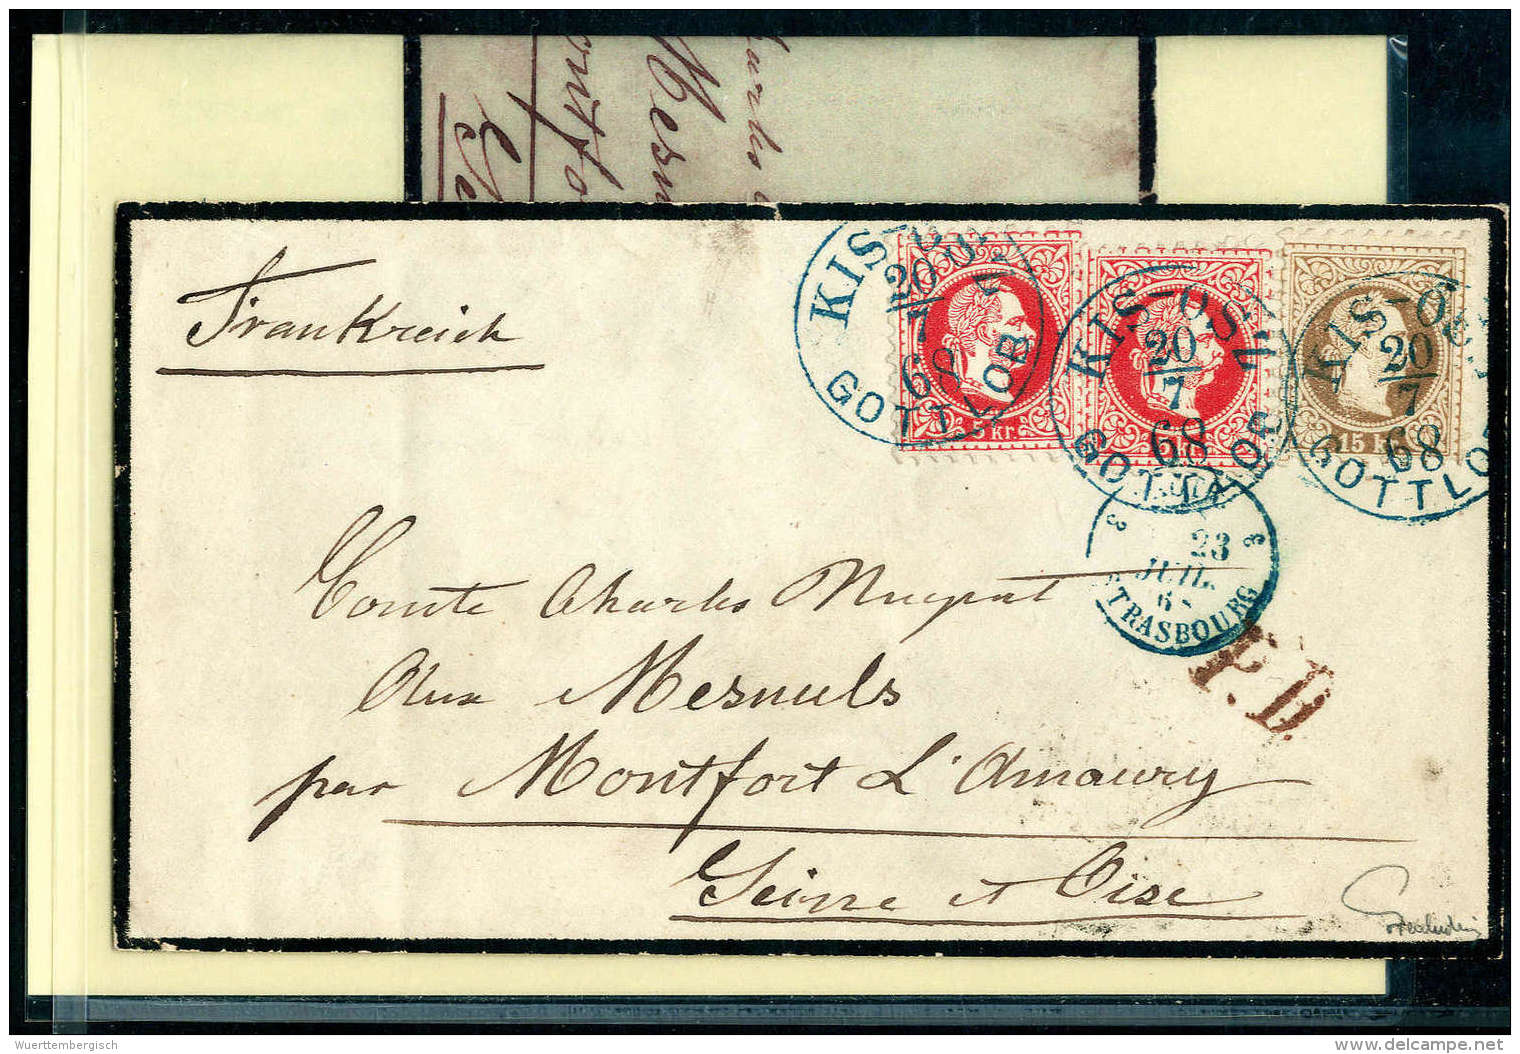 Frankreich
KIS-
20
7
68
GOTTLOB
5 kr.
KIS-OSZ
20
7
68
GOTTLOB
KIS-OS
20
7
68
GOTTLOB
15 kr.
3 3
23
JUIL.
STRASBOURG
P.D.
Comte Charles
Aux Mesnuls
par Montfort L'Amaury
Seine et Oise
Wuerttembergisch
delcampe.net